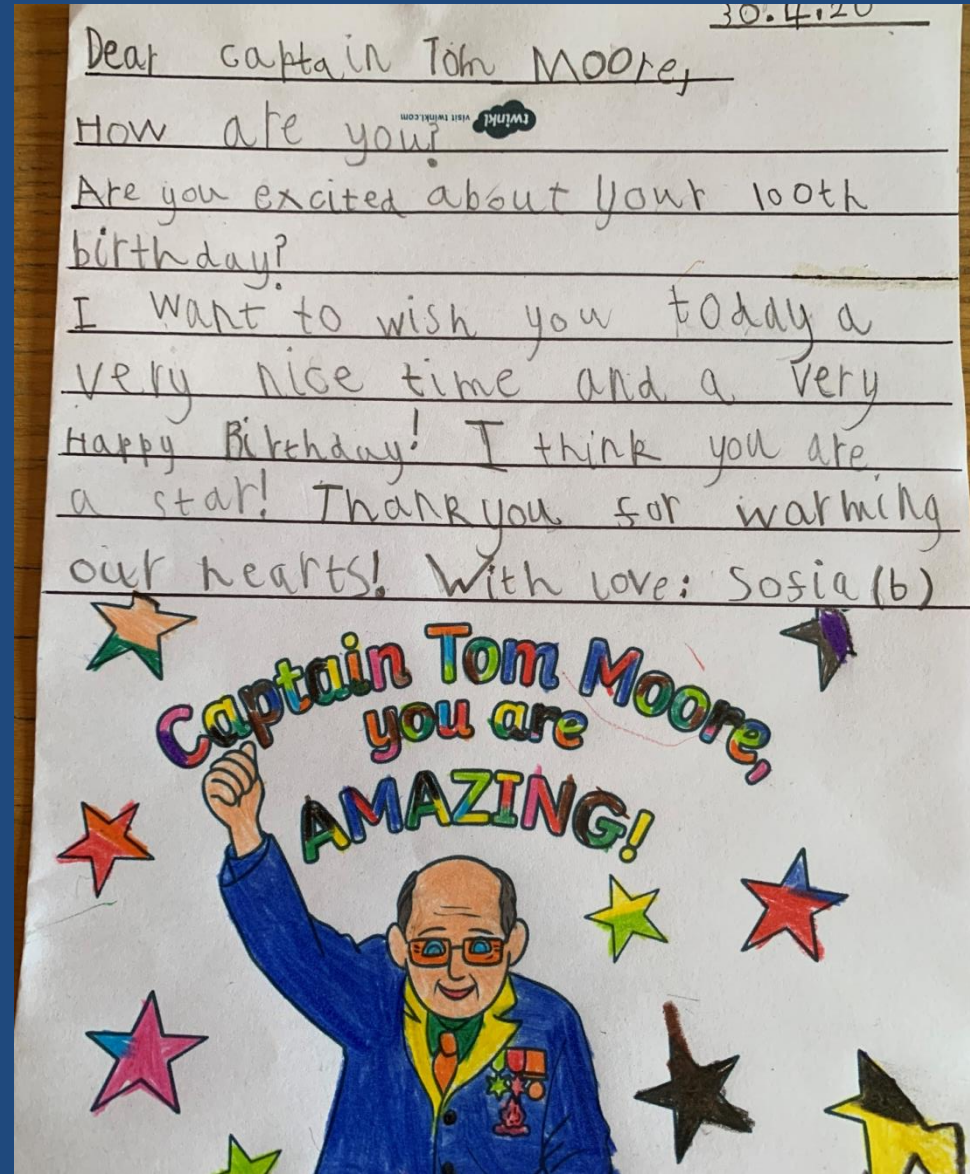 30.4.20
Dear Captain Tom Moore,
twinkl visit twinkl.com
How are you?
Are you excited about your 100th
birthday?
I want to wish you today a
very nice time and a very
Happy Birthday! I think you are
a star! Thank you for warming
our hearts! With love: Sofia (6)
Captain Tom Moore,
you are
AMAZING!